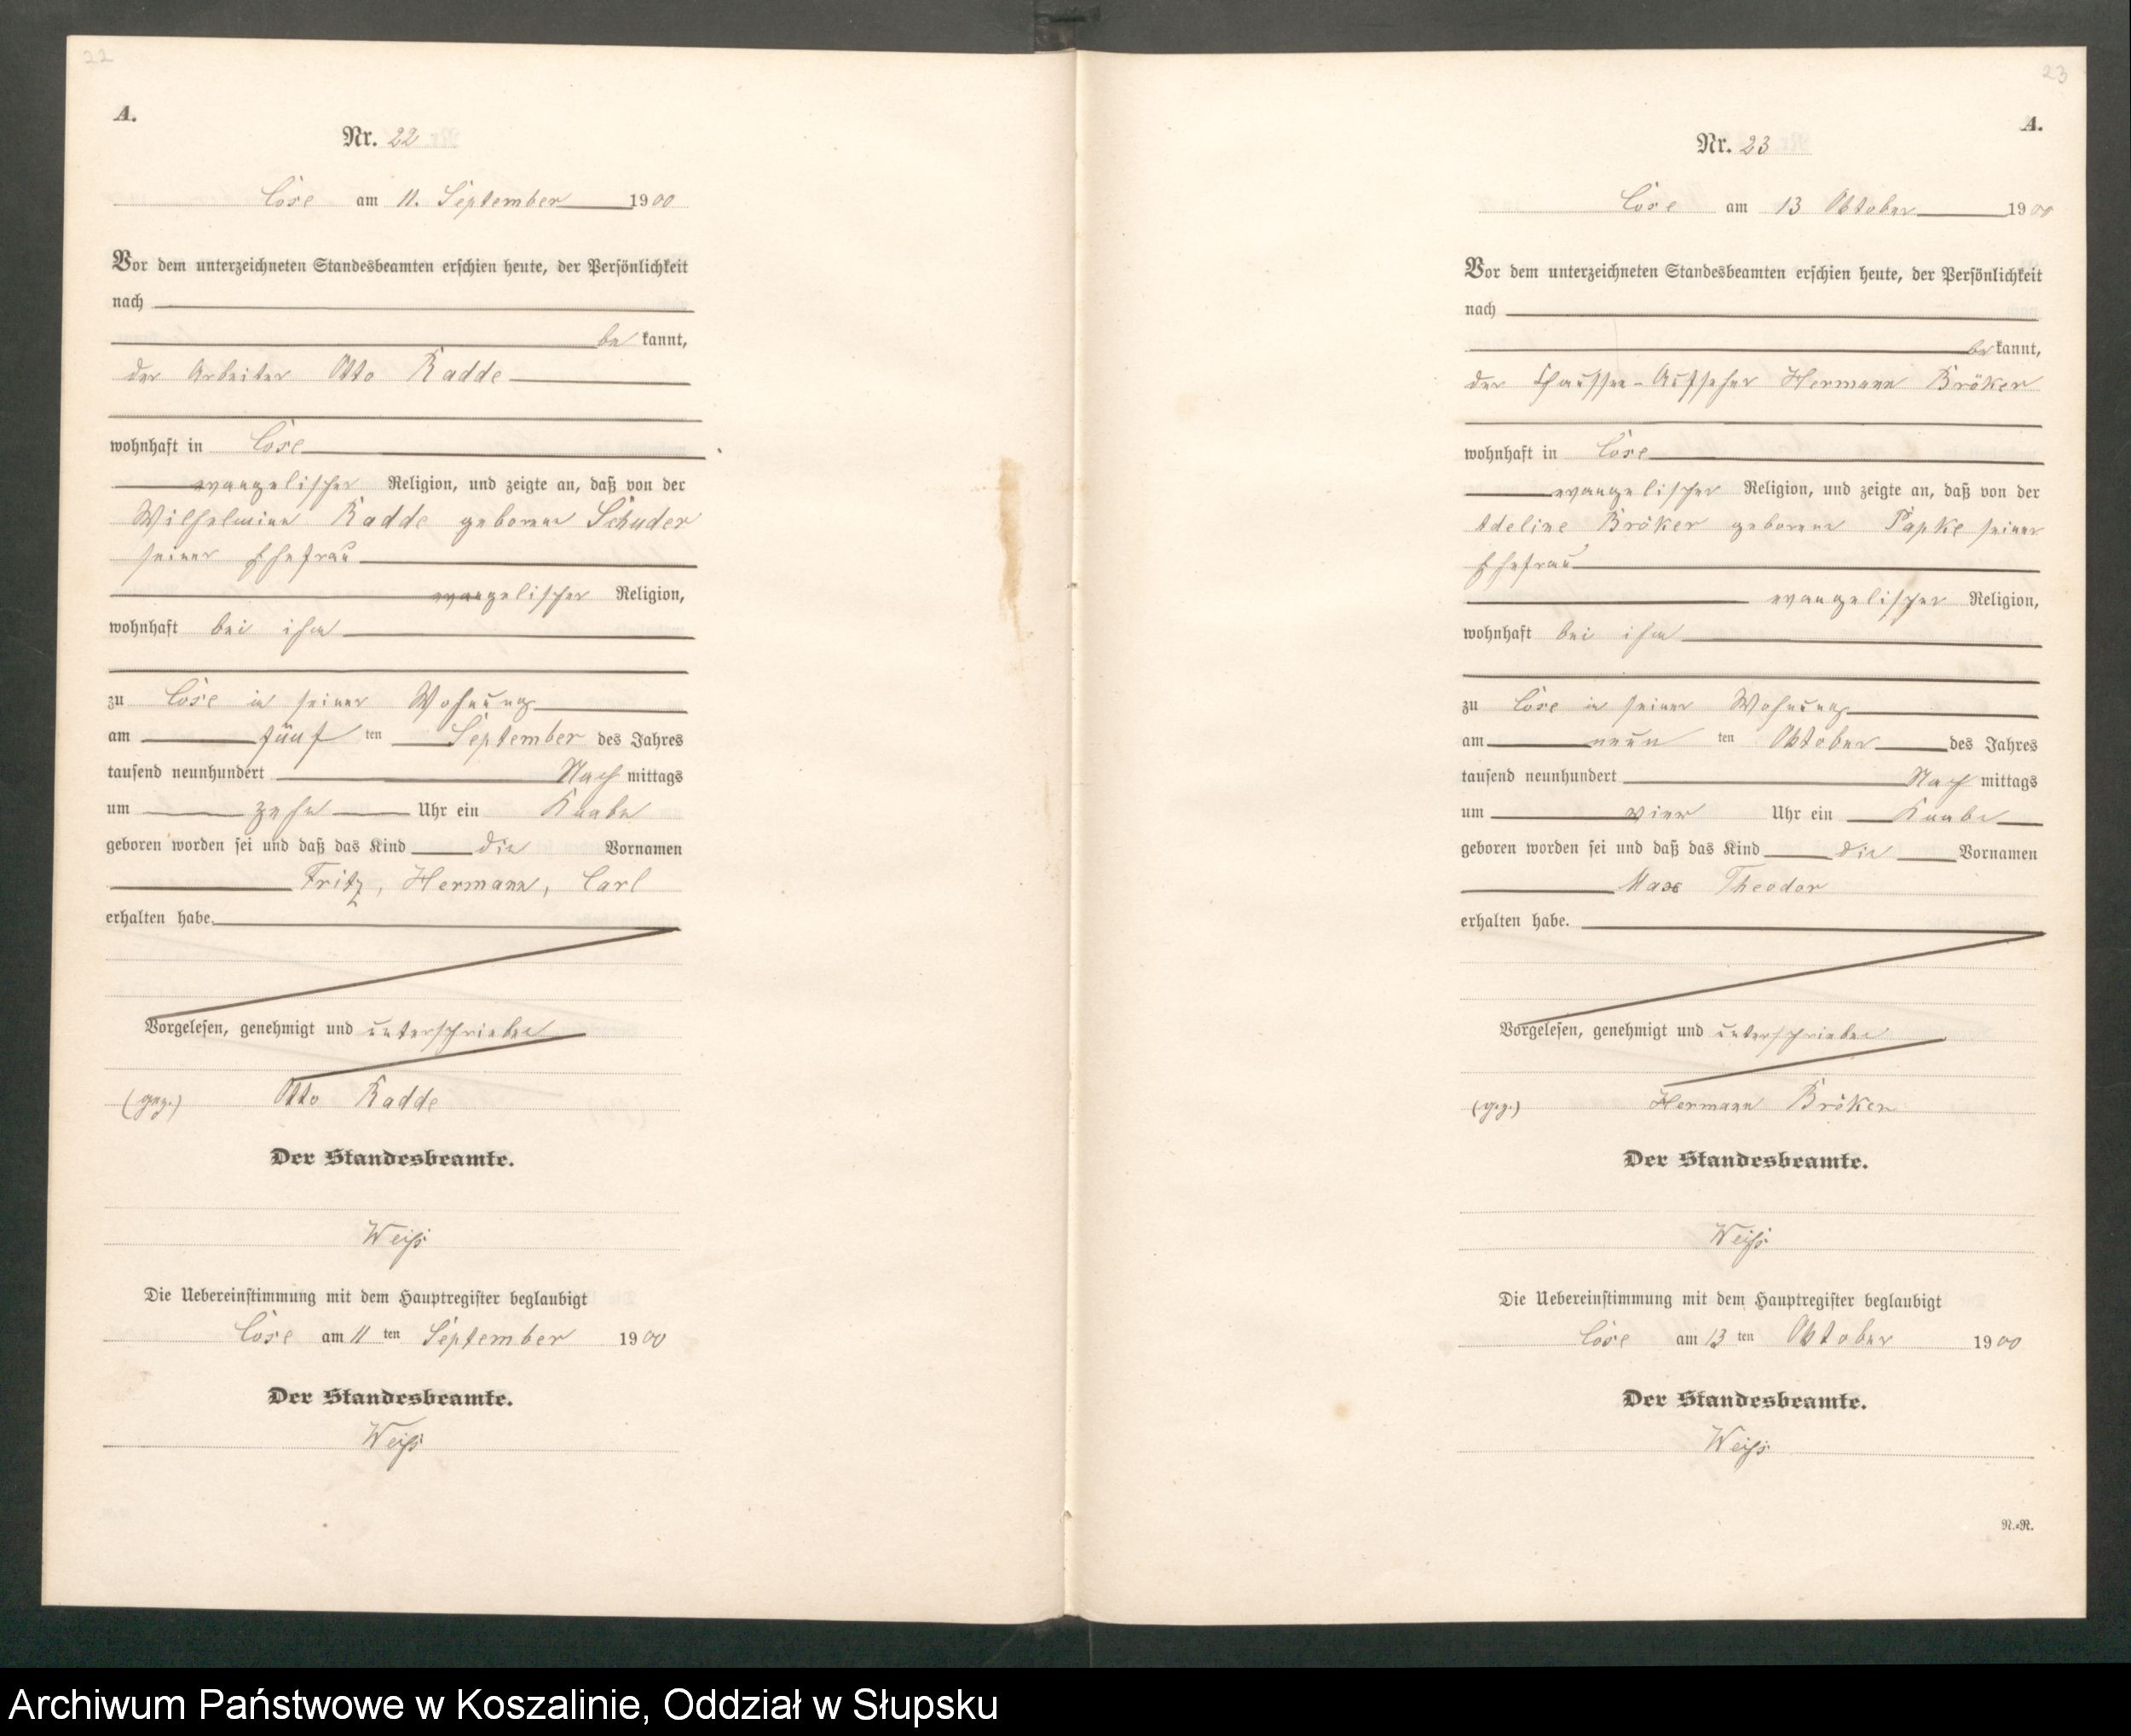 22
A.
Nr. 22
Cose am 11. September 1900
Vor dem unterzeichneten Standesbeamten erschien heute, der Persönlichkeit
nach
be kannt,
der Arbeiter Otto Radde
wohnhaft in Cose
evangelischer Religion, und zeigte an, daß von der
Wilhelmine Radde geborene Schuder
seiner Ehefrau
evangelischer Religion,
wohnhaft bei ihm
zu Cose in seiner Wohnung
am fünf ten September des Jahres
tausend neunhundert Nach mittags
um zehn Uhr ein Knabe
geboren worden sei und daß das Kind die Vornamen
Fritz, Hermann, Carl
erhalten habe.
Vorgelesen, genehmigt und unterschrieben
(gez.) Otto Radde
Der Standesbeamte.
Weiß
Die Uebereinstimmung mit dem Hauptregister beglaubigt
Cose am 11 ten September 1900
Der Standesbeamte.
Weiß
23
A.
Nr. 23
Cose am 13 Oktober 1900
Vor dem unterzeichneten Standesbeamten erschien heute, der Persönlichkeit
nach
be kannt,
der Chaussee-Aufseher Hermann Bröker
wohnhaft in Cose
evangelischer Religion, und zeigte an, daß von der
Adeline Bröker geborene Papke seiner
Ehefrau
evangelischer Religion,
wohnhaft bei ihm
zu Cose in seiner Wohnung
am neun ten Oktober des Jahres
tausend neunhundert Nach mittags
um vier Uhr ein Knabe
geboren worden sei und daß das Kind die Vornamen
Max Theodor
erhalten habe.
Vorgelesen, genehmigt und unterschrieben
(gez.) Hermann Bröker
Der Standesbeamte.
Weiß
Die Uebereinstimmung mit dem Hauptregister beglaubigt
Cose am 13 ten Oktober 1900
Der Standesbeamte.
Weiß
R.=R.
Archiwum Państwowe w Koszalinie, Oddział w Słupsku